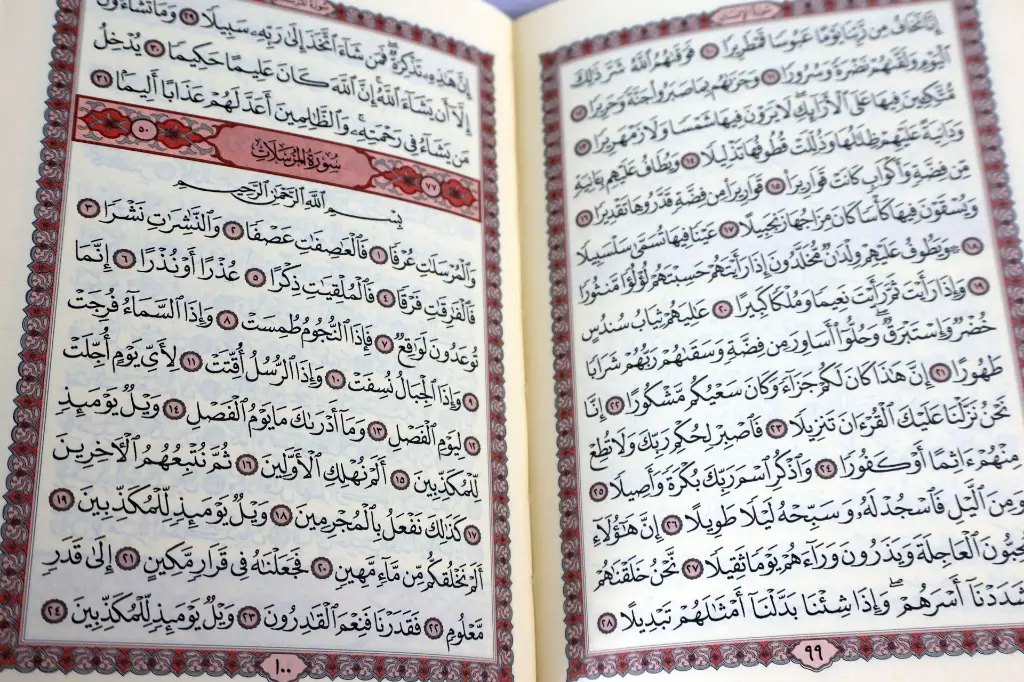 إِنَّا نَخَافُ مِن رَّبِّنَا يَوْمًا عَبُوسًا قَمْطَرِيرًا ١٠ فَوَقَىٰهُمُ ٱللَّهُ شَرَّ ذَٰلِكَ
ٱلْيَوْمِ وَلَقَّىٰهُمْ نَضْرَةً وَسُرُورًا ١١ وَجَزَىٰهُم بِمَا صَبَرُوا۟ جَنَّةً وَحَرِيرًا ١٢
مُّتَّكِـِٔينَ فِيهَا عَلَى ٱلْأَرَآئِكِ ۖ لَا يَرَوْنَ فِيهَا شَمْسًا وَلَا زَمْهَرِيرًا ١٣
وَدَانِيَةً عَلَيْهِمْ ظِلَٰلُهَا وَذُلِّلَتْ قُطُوفُهَا تَذْلِيلًا ١٤ وَيُطَافُ عَلَيْهِم بِـَٔانِيَةٍ
مِّن فِضَّةٍ وَأَكْوَابٍ كَانَتْ قَوَارِيرَا۠ ١٥ قَوَارِيرَا۟ مِن فِضَّةٍ قَدَّرُوهَا تَقْدِيرًا ١٦
وَيُسْقَوْنَ فِيهَا كَأْسًا كَانَ مِزَاجُهَا زَنجَبِيلًا ١٧ عَيْنًا فِيهَا تُسَمَّىٰ سَلْسَبِيلًا
١٨ ۞ وَيَطُوفُ عَلَيْهِمْ وِلْدَٰنٌ مُّخَلَّدُونَ إِذَا رَأَيْتَهُمْ حَسِبْتَهُمْ لُؤْلُؤًا مَّنثُورًا
١٩ وَإِذَا رَأَيْتَ ثَمَّ رَأَيْتَ نَعِيمًا وَمُلْكًا كَبِيرًا ٢٠ عَٰلِيَهُمْ ثِيَابُ سُندُسٍ
خُضْرٌ وَإِسْتَبْرَقٌ ۖ وَحُلُّوٓا۟ أَسَاوِرَ مِن فِضَّةٍ وَسَقَىٰهُمْ رَبُّهُمْ شَرَابًا
طَهُورًا ٢١ إِنَّ هَٰذَا كَانَ لَكُمْ جَزَآءً وَكَانَ سَعْيُكُم مَّشْكُورًا ٢٢ إِنَّا
نَحْنُ نَزَّلْنَا عَلَيْكَ ٱلْقُرْءَانَ تَنزِيلًا ٢٣ فَٱصْبِرْ لِحُكْمِ رَبِّكَ وَلَا تُطِعْ
مِنْهُمْ ءَاثِمًا أَوْ كَفُورًا ٢٤ وَٱذْكُرِ ٱسْمَ رَبِّكَ بُكْرَةً وَأَصِيلًا ٢٥
وَمِنَ ٱلَّيْلِ فَٱسْجُدْ لَهُۥ وَسَبِّحْهُ لَيْلًا طَوِيلًا ٢٦ إِنَّ هَٰٓؤُلَآءِ
يُحِبُّونَ ٱلْعَاجِلَةَ وَيَذَرُونَ وَرَآءَهُمْ يَوْمًا ثَقِيلًا ٢٧ نَّحْنُ خَلَقْنَٰهُمْ
وَشَدَدْنَآ أَسْرَهُمْ ۖ وَإِذَا شِئْنَا بَدَّلْنَآ أَمْثَٰلَهُمْ تَبْدِيلًا ٢٨
٩٩
إِنَّ هَٰذِهِۦ تَذْكِرَةٌ ۖ فَمَن شَآءَ ٱتَّخَذَ إِلَىٰ رَبِّهِۦ سَبِيلًا ٢٩ وَمَا تَشَآءُونَ
إِلَّآ أَن يَشَآءَ ٱللَّهُ ۚ إِنَّ ٱللَّهَ كَانَ عَلِيمًا حَكِيمًا ٣٠ يُدْخِلُ
مَن يَشَآءُ فِى رَحْمَتِهِۦ ۚ وَٱلظَّٰلِمِينَ أَعَدَّ لَهُمْ عَذَابًا أَلِيمًۢا ٣١
٧٧ سُورَةُ المُرْسَلَاتِ ٥٠
بِسْمِ ٱللَّهِ ٱلرَّحْمَٰنِ ٱلرَّحِيمِ
وَٱلْمُرْسَلَٰتِ عُرْفًا ١ فَٱلْعَٰصِفَٰتِ عَصْفًا ٢ وَٱلنَّٰشِرَٰتِ نَشْرًا ٣
فَٱلْفَٰرِقَٰتِ فَرْقًا ٤ فَٱلْمُلْقِيَٰتِ ذِكْرًا ٥ عُذْرًا أَوْ نُذْرًا ٦ إِنَّمَا
تُوعَدُونَ لَوَٰقِعٌ ٧ فَإِذَا ٱلنُّجُومُ طُمِسَتْ ٨ وَإِذَا ٱلسَّمَآءُ فُرِجَتْ
٩ وَإِذَا ٱلْجِبَالُ نُسِفَتْ ١٠ وَإِذَا ٱلرُّسُلُ أُقِّتَتْ ١١ لِأَىِّ يَوْمٍ أُجِّلَتْ
١٢ لِيَوْمِ ٱلْفَصْلِ ١٣ وَمَآ أَدْرَىٰكَ مَا يَوْمُ ٱلْفَصْلِ ١٤ وَيْلٌ يَوْمَئِذٍ
لِّلْمُكَذِّبِينَ ١٥ أَلَمْ نُهْلِكِ ٱلْأَوَّلِينَ ١٦ ثُمَّ نُتْبِعُهُمُ ٱلْـَٔاخِرِينَ
١٧ كَذَٰلِكَ نَفْعَلُ بِٱلْمُجْرِمِينَ ١٨ وَيْلٌ يَوْمَئِذٍ لِّلْمُكَذِّبِينَ ١٩
أَلَمْ نَخْلُقكُّم مِّن مَّآءٍ مَّهِينٍ ٢٠ فَجَعَلْنَٰهُ فِى قَرَارٍ مَّكِينٍ ٢١ إِلَىٰ قَدَرٍ
مَّعْلُومٍ ٢٢ فَقَدَرْنَا فَنِعْمَ ٱلْقَٰدِرُونَ ٢٣ وَيْلٌ يَوْمَئِذٍ لِّلْمُكَذِّبِينَ ٢٤
١٠٠